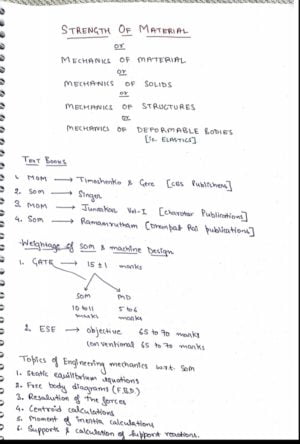 STRENGTH OF MATERIAL
or
MECHANICS OF MATERIAL
or
MECHANICS OF SOLIDS
or
MECHANICS OF STRUCTURES
or
MECHANICS OF DEFORMABLE BODIES
[i.e. ELASTICS]
TEXT BOOKS
1. MOM → Timoshenko & Gere [CBS Publishers]
2. SOM → Singer
3. MOM → Junarkar Vol-I [Charotar Publications]
4. SOM → Ramamrutham [Dhanpat Rai publications]
Weightage of SOM & Machine Design
1. GATE → 15 ± 1 marks
SOM MD
10 to 11 5 to 6
marks marks
2. ESE → objective 65 to 70 marks
Conventional 65 to 70 marks
Topics of Engineering mechanics w.r.t. SOM
1. Static equilibrium equations
2. Free body diagrams (F.B.D.)
3. Resolution of the forces
4. Centroid calculations
5. Moment of inertia calculations
6. Supports & calculation of support reactions.